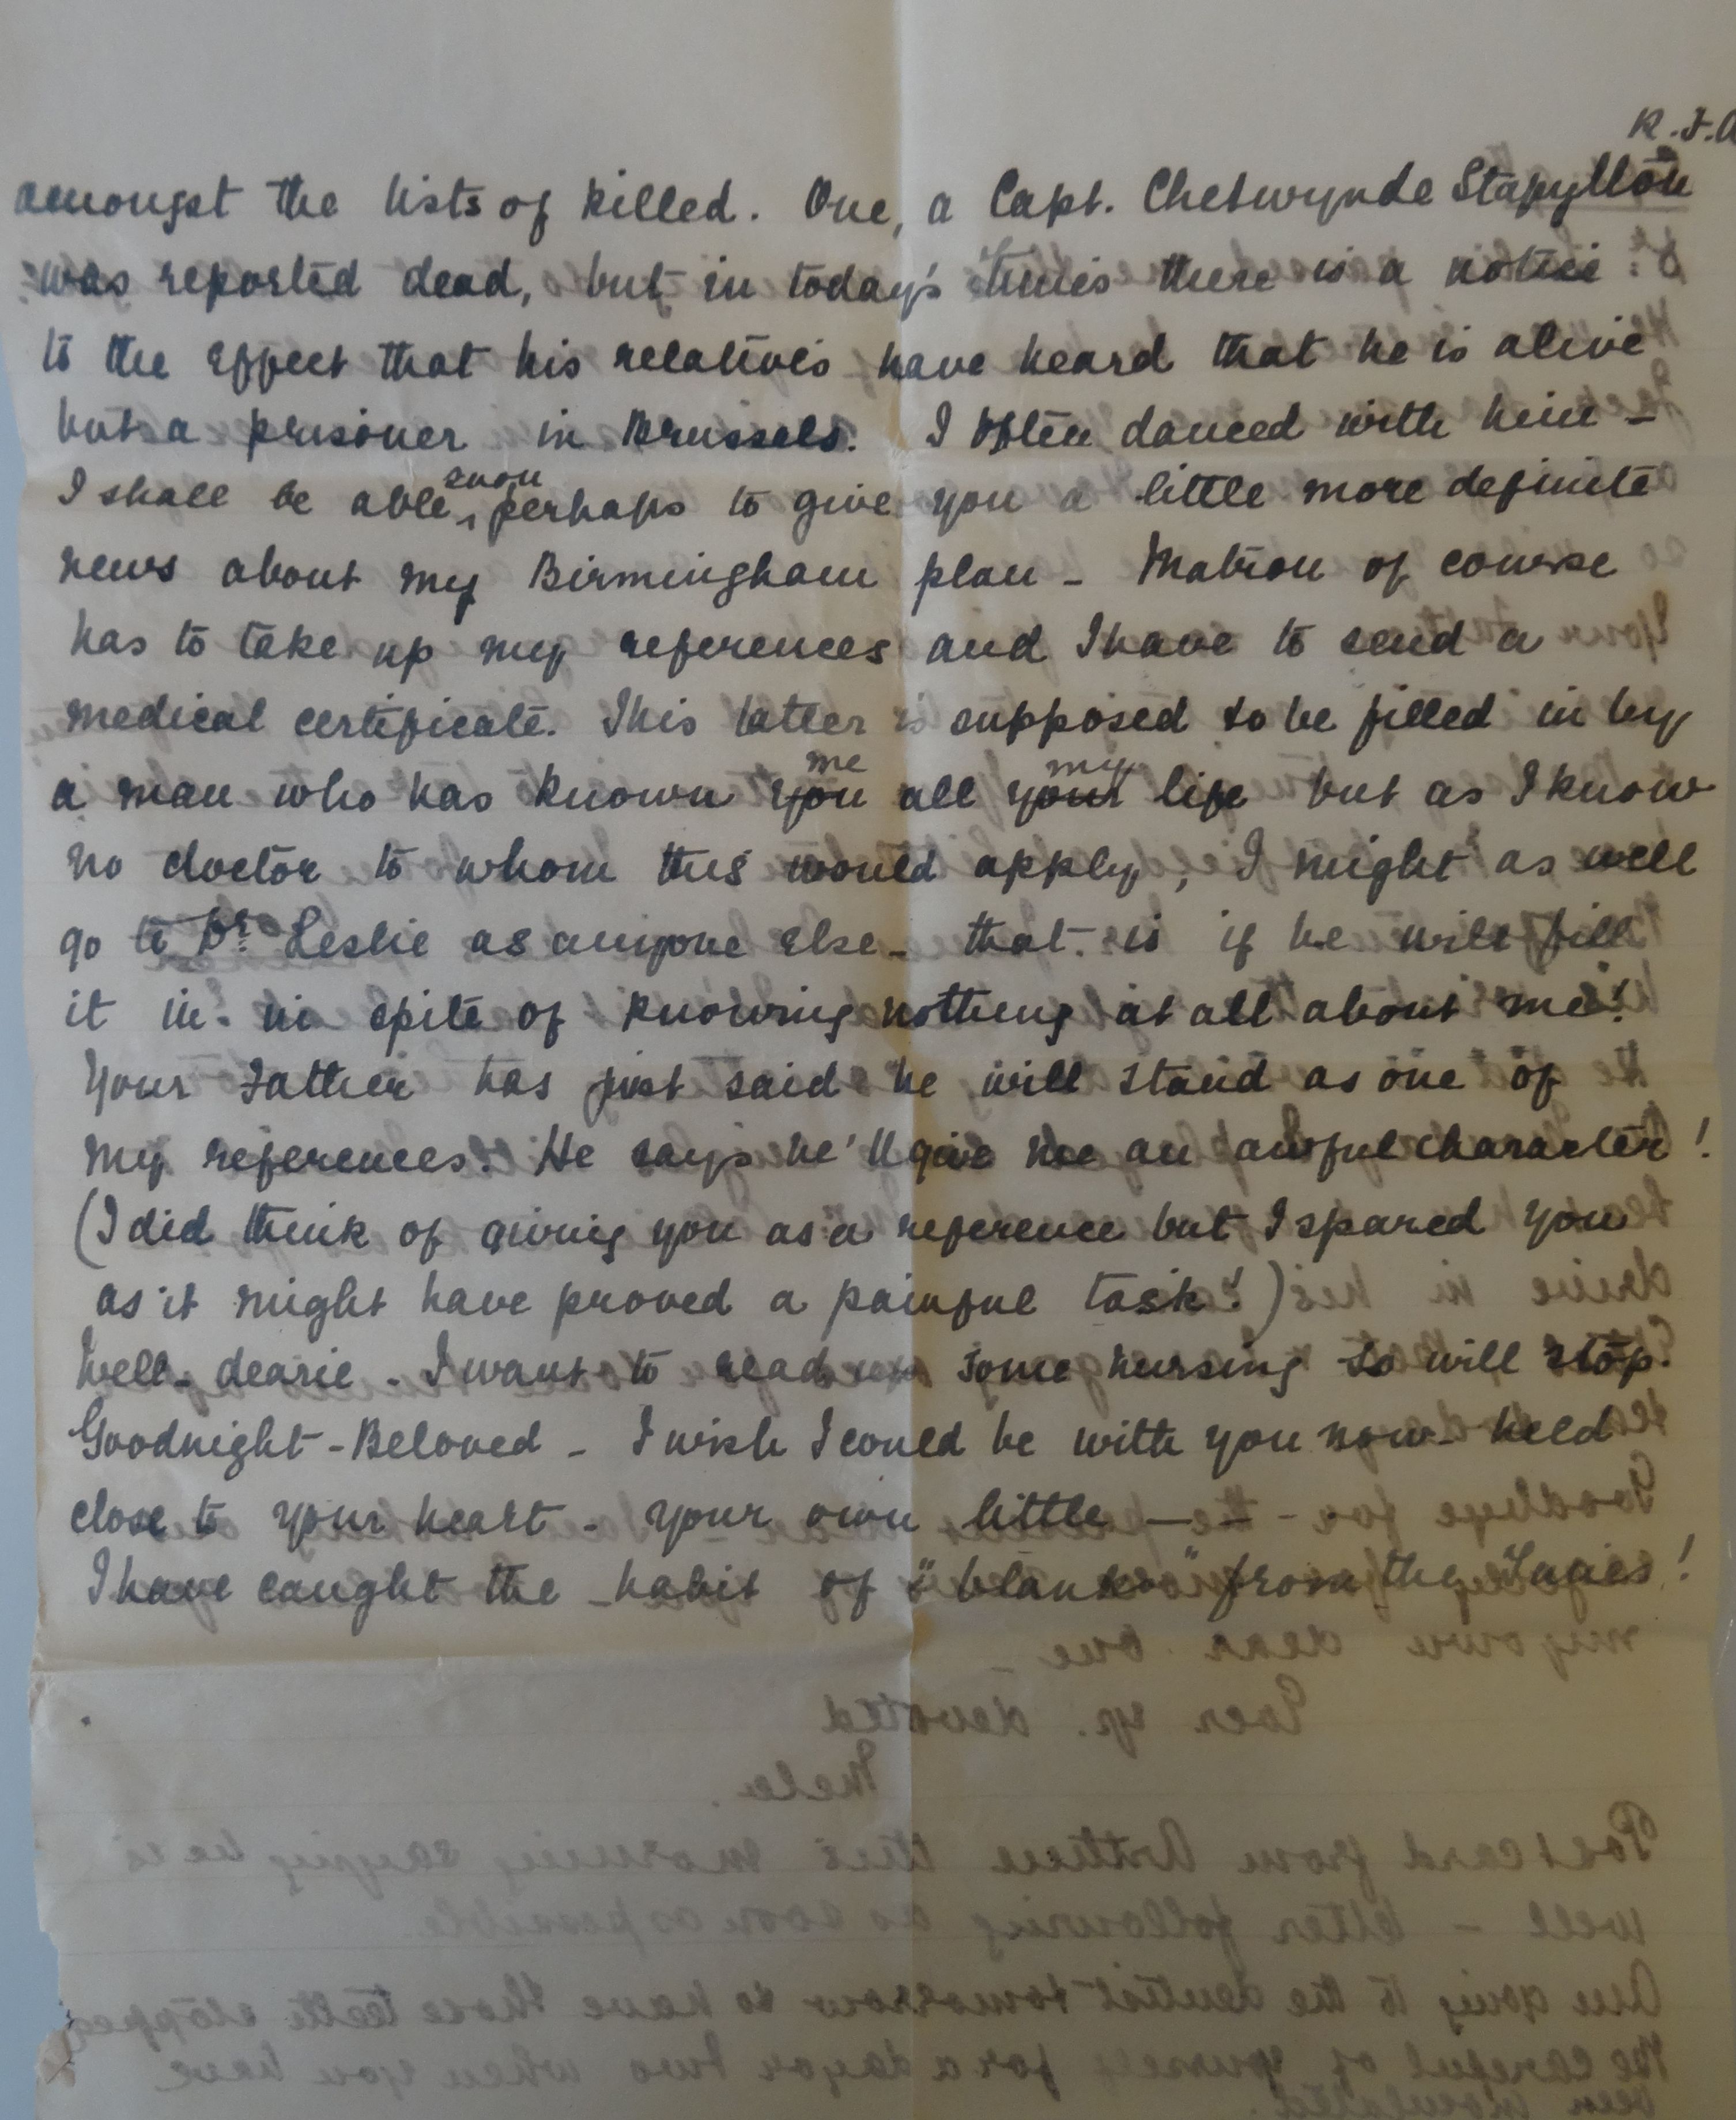 R.F.A
amongst the lists of killed. One, a Capt. Chetwynde Stapylton
was reported dead, but in today's Times there is a notice
to the effect that his relatives have heard that he is alive
but a prisoner in Brussels. I often danced with him -
I shall be able soon perhaps to give you a little more definite
news about my Birmingham plan - Matron of course
has to take up my references and I have to send a
medical certificate. This latter is supposed to be filled in by
a man who has known you me all your my life but as I know
no doctor to whom this would apply, I might as well
go to Dr. Leslie as anyone else - that is if he will fill
it in in spite of knowing nothing at all about me!
Your Father has just said he will stand as one of
my references. He says he'll give me an awful character!
(I did think of giving you as a reference but I spared you
as it might have proved a painful task!)
Well - dearie - I want to read up some nursing so will stop.
Goodnight - Beloved - I wish I could be with you now - held
close to your heart - your own little — — -
I have caught the habit of "blanks" from the Times!
my own dear one
Ever yr. devoted
Postcard from Arthur this morning saying he is
well - letter following as soon as possible.
Am going to the dentist tomorrow to have those teeth stopped
Be careful of yourself for a day or two when you have
been inoculated.